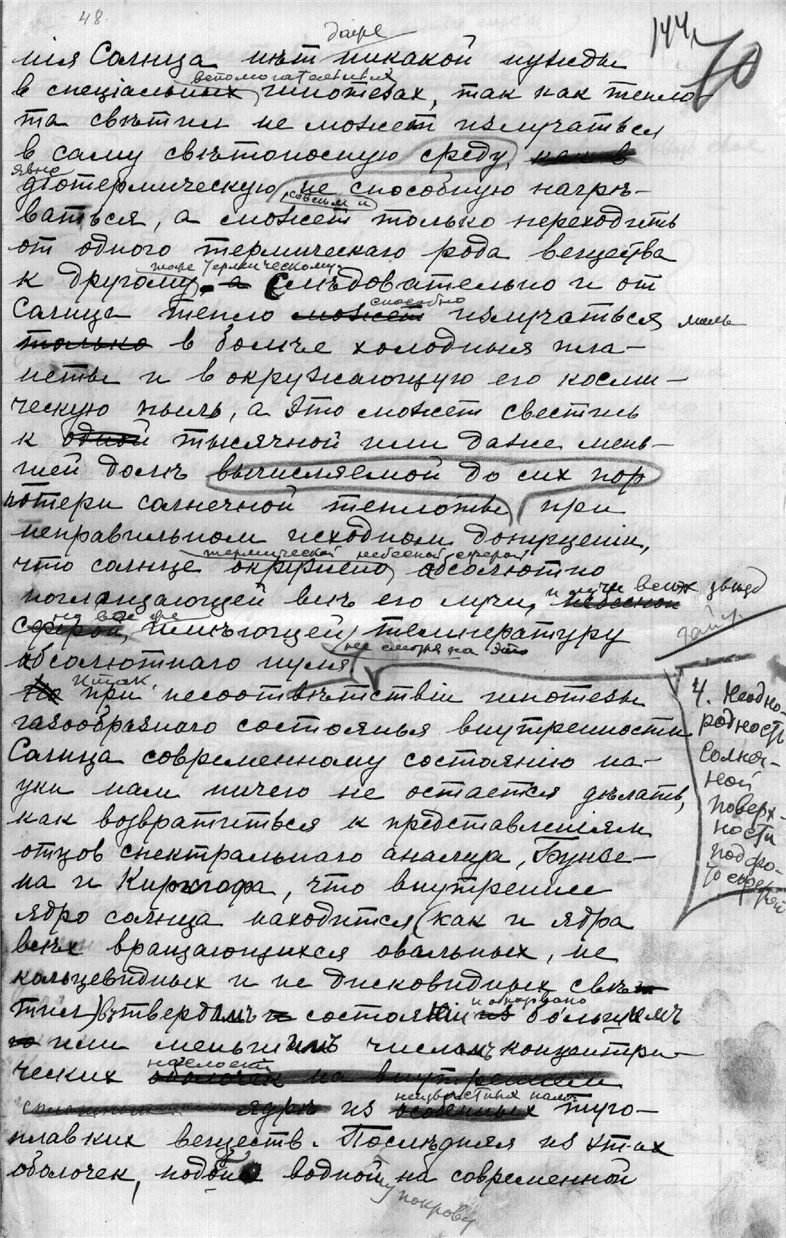 48.
144
70
даже
нія Солнца нѣт никакой нужды
вспомогательных
в спеціальных гипотезах, так как тепло-
та свѣтил не может излучаться
в саму свѣтоносную среду, как в
явно
діотермическую, не способную нагрѣ-
совсѣм и
ваться, а может только переходить
от одного термическаго рода вещества
тоже термическому
к другому. а Слѣдовательно и от
способно
Солнца тепло может излучаться лишь
только в болѣе холодныя пла-
неты и в окружающую его косми-
ческую пыль, а это может свестись
к одной тысячной или даже мень-
шей долѣ вычисляемой до сих пор
потери солнечной теплоты при
неправильном исходном допущеніи,
термической небесной сферой
что солнце окружено абсолютно
поглощающей всѣ его лучи, и лучи всѣх звѣзд небесной
но все же
сферой, имѣющей температуру
не смотря на это
абсолютнаго нуля
итак
Но при несоотвѣтствіи гипотезы
газообразнаго состоянья внутренности
Солнца современному состоянію на-
уки нам ничего не остается дѣлать,
как возвратиться к представленіям
отцов спектральнаго анализа, Бунзе-
на и Кирхгофа, что внутреннее
ядро солнца находится (как и ядра
всѣх вращающихся овальных, не
кольцевидных и не дисковидных свѣ-
тил) в твердом состояніи
большим
или меньшим числом концентри-
ческих оболочек на внутреннем
неизвѣстных нам
ядрѣ из особенных туго-
плавких веществ. Послѣдняя из этих
оболочек, подобно водной на современной
покрову
4. Неодно-
родность
Солнеч-
ной
поверх-
ности
под фо-
тосферой